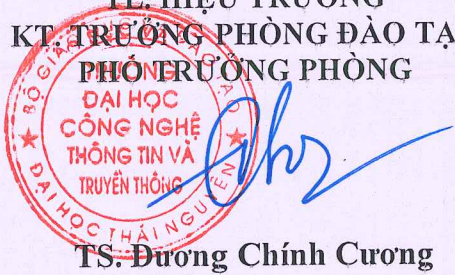 TL. HIỆU TRƯỞNG
KT. TRƯỞNG PHÒNG ĐÀO TẠ
PHÓ TRƯỞNG PHÒNG
TRƯỜNG
ĐẠI HỌC
CÔNG NGHỆ
THÔNG TIN VÀ
TRUYỀN THÔNG
ĐẠI HỌC THÁI NGUYÊN
TS. Dương Chính Cương